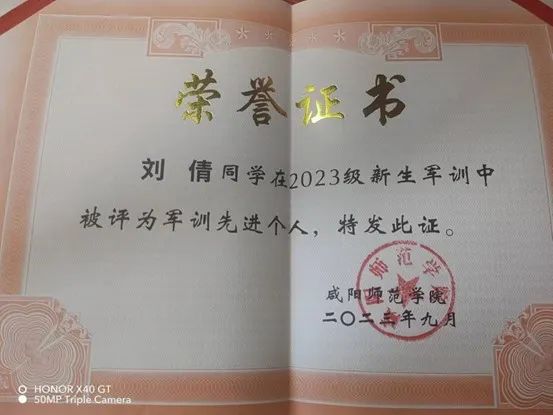 荣誉证书
刘 倩同学在2023级新生军训中
被评为军训先进个人，特发此证。
师范学
咸阳师范学院
二〇二三年九月
HONOR X40 GT
50MP Triple Camera